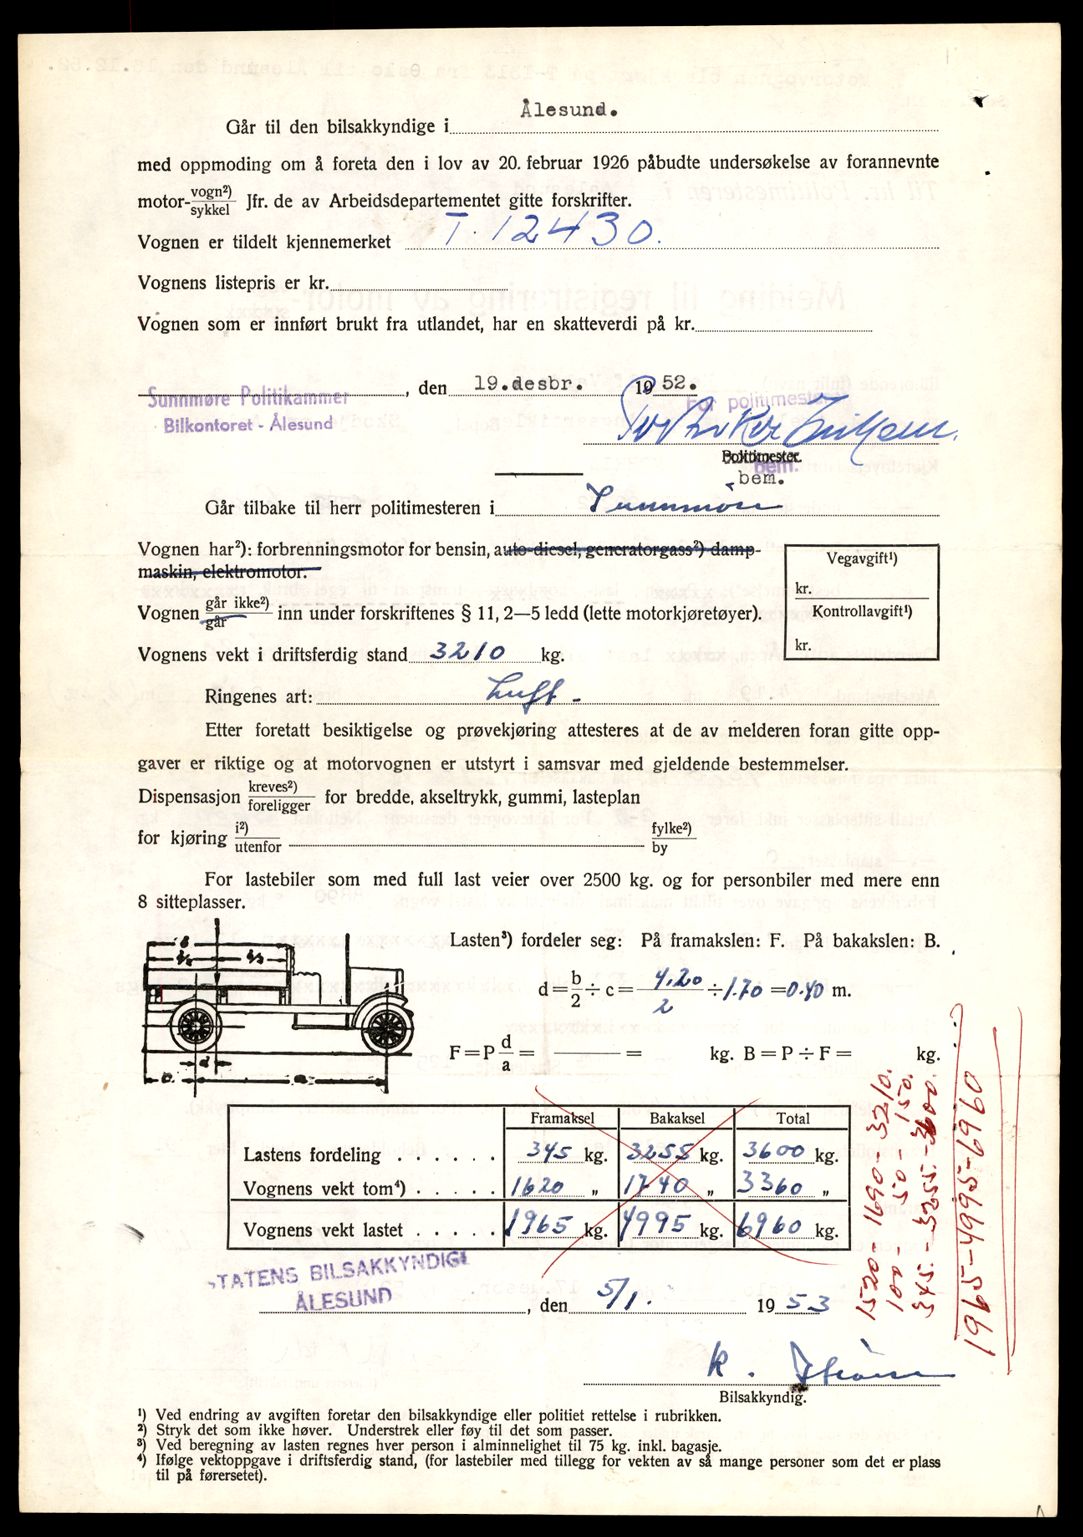 Går til den bilsakkyndige i Ålesund.
med oppmoding om å foreta den i lov av 20. februar 1926 påbudte undersøkelse av forannevnte
motor- vogn²) / sykkel Jfr. de av Arbeidsdepartementet gitte forskrifter.
Vognen er tildelt kjennemerket T. 12430.
Vognens listepris er kr.
Vognen som er innført brukt fra utlandet, har en skatteverdi på kr.
Sunnmøre Politikammer
Bilkontoret - Ålesund
, den 19.desbr. 1952.
For politimester
Politimester.
bem.
bem.
Går tilbake til herr politimesteren i Sunnmøre
Vognen har²): forbrenningsmotor for bensin, auto-diesel, generatorgass²) damp-
maskin, elektromotor.
Vegavgift¹)
kr.
Kontrollavgift¹)
kr.
Vognen går ikke²) / går inn under forskriftenes § 11, 2—5 ledd (lette motorkjøretøyer).
Vognens vekt i driftsferdig stand 3210 kg.
Ringenes art: Luft -
Etter foretatt besiktigelse og prøvekjøring attesteres at de av melderen foran gitte opp-
gaver er riktige og at motorvognen er utstyrt i samsvar med gjeldende bestemmelser.
Dispensasjon kreves²) / foreligger for bredde, akseltrykk, gummi, lasteplan
for kjøring i²) / utenfor fylke²) / by
For lastebiler som med full last veier over 2500 kg. og for personbiler med mere enn
8 sitteplasser.
Lasten³) fordeler seg: På framakslen: F. På bakakslen: B.
d = b/2 ÷ c = 4.20/2 ÷ 1.70 = 0.40 m.
F = P d/a = = kg. B = P ÷ F = kg.
Framaksel Bakaksel Total
Lastens fordeling . . . . . . 345 kg. 3255 kg. 3600 kg.
Vognens vekt tom⁴) . . . . . 1620 „ 1740 „ 3360 „
Vognens vekt lastet . . . . . 1965 kg. 4995 kg. 6960 kg.
1520 - 1690 - 3210.
100 - 50 - 150.
345. - 3255. - 3600.
1965 - 4995 - 6960
STATENS BILSAKKYNDIGE
ÅLESUND
, den 5/1. 1953
K.
Bilsakkyndig.
¹) Ved endring av avgiften foretar den bilsakkyndige eller politiet rettelse i rubrikken.
²) Stryk det som ikke høver. Understrek eller føy til det som passer.
³) Ved beregning av lasten regnes hver person i alminnelighet til 75 kg. inkl. bagasje.
⁴) Ifølge vektoppgave i driftsferdig stand, (for lastebiler med tillegg for vekten av så mange personer som det er plass
til på førersetet).